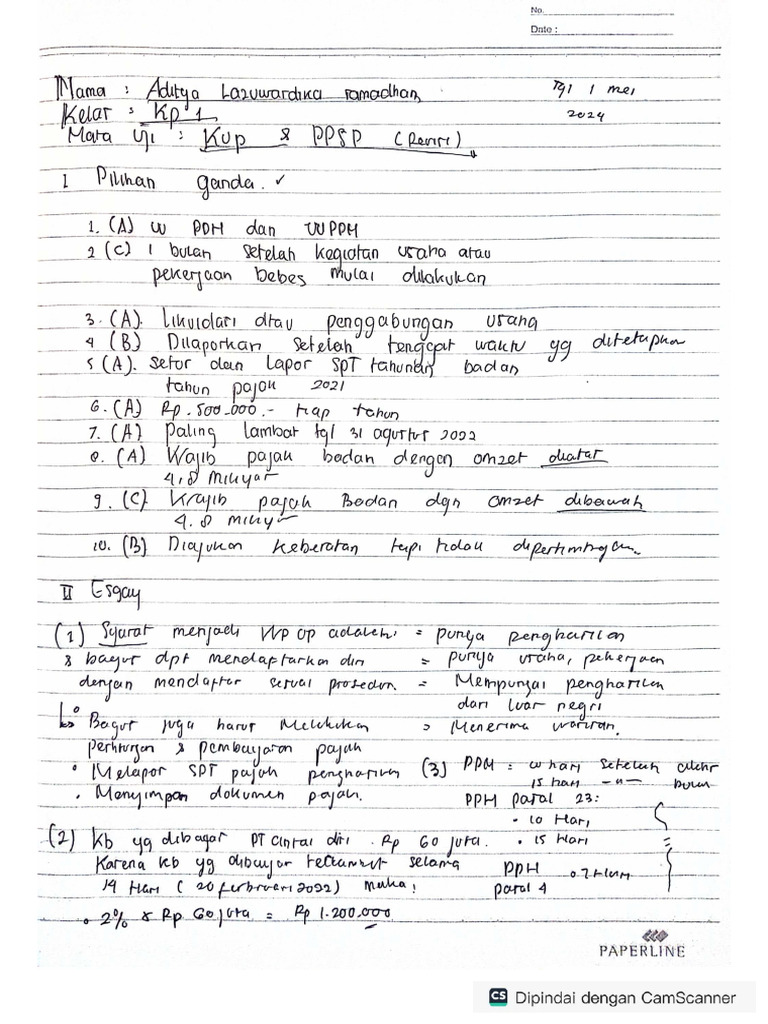 No.
Date :
Nama : Aditya Lazuwardika ramadhan
Tgl 1 mei
2024
Kelas : Kp 1
Mata Uji : KUP & PPSP (Revisi)
I Pilihan ganda. ✓
1. (A) UU PDH dan UU PPM
2 (C) 1 bulan setelah kegiatan usaha atau
pekerjaan bebes mulai dilakukan
3. (A). Likuidasi atau penggabungan usaha
4 (B) Dilaporkan setelah tenggat waktu yg ditetapkan
5 (A). Setor dan Lapor SPT tahunan badan
tahun pajak 2021
6. (A) Rp. 500.000.- tiap tahun
7. (A) Paling lambat tgl 31 agustus 2022
8. (A) Wajib pajak badan dengan omzet diatas
4,8 milyar
9. (C) Wajib pajak Badan dgn omzet dibawah
4.8 milyar
10. (B) Diajukan keberatan tapi tidak
II Essay
(1) Syarat menjadi WP OP adalah: = punya penghasilan
& bagus dpt mendaftarkan diri = punya usaha, pekerjaan
dengan mendaftar sesuai prosedur. = Mempunyai penghasilan
dari luar negri
Bagus juga harus Melakukan = Menerima warisan.
perhitungan & pembayaran pajak
• Melapor SPT pajak penghasilan
• Menyimpan dokumen pajak.
(3) PPM = hari setelah akhir
15 hari -"- bulan
PPH pasal 23:
• 10 Hari
• 15 Hari
PPH
pasal 4
(2) Kb yg dibayar PT Cintai diri Rp 60 juta.
Karena kb yg dibayar terlambat selama
19 Hari (20 februari 2022) maka:
• 2% x Rp 60 juta = Rp 1.200.000
PAPERLINE
CS Dipindai dengan CamScanner